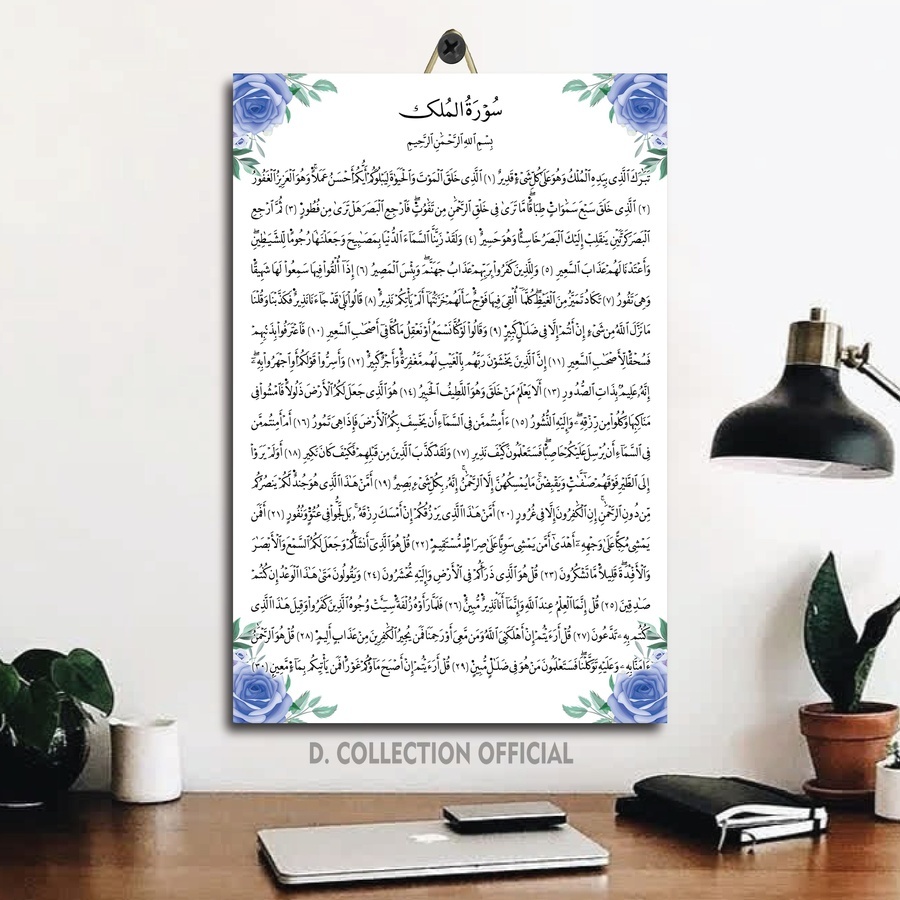 سُوْرَةُ الْمُلْك
بِسْمِ اللهِ الرَّحْمٰنِ الرَّحِيْمِ
تَبَٰرَكَ ٱلَّذِى بِيَدِهِ ٱلْمُلْكُ وَهُوَ عَلَىٰ كُلِّ شَىْءٍ قَدِيرٌ (١) ٱلَّذِى خَلَقَ ٱلْمَوْتَ وَٱلْحَيَوٰةَ لِيَبْلُوَكُمْ أَيُّكُمْ أَحْسَنُ عَمَلًا ۚ وَهُوَ ٱلْعَزِيزُ ٱلْغَفُورُ
(٢) ٱلَّذِى خَلَقَ سَبْعَ سَمَٰوَٰتٍ طِبَاقًا ۖ مَّا تَرَىٰ فِى خَلْقِ ٱلرَّحْمَٰنِ مِن تَفَٰوُتٍ ۖ فَٱرْجِعِ ٱلْبَصَرَ هَلْ تَرَىٰ مِن فُطُورٍ (٣) ثُمَّ ٱرْجِعِ
ٱلْبَصَرَ كَرَّتَيْنِ يَنقَلِبْ إِلَيْكَ ٱلْبَصَرُ خَاسِئًا وَهُوَ حَسِيرٌ (٤) وَلَقَدْ زَيَّنَّا ٱلسَّمَآءَ ٱلدُّنْيَا بِمَصَٰبِيحَ وَجَعَلْنَٰهَا رُجُومًا لِّلشَّيَٰطِينِ ۖ
وَأَعْتَدْنَا لَهُمْ عَذَابَ ٱلسَّعِيرِ (٥) وَلِلَّذِينَ كَفَرُوا۟ بِرَبِّهِمْ عَذَابُ جَهَنَّمَ ۖ وَبِئْسَ ٱلْمَصِيرُ (٦) إِذَآ أُلْقُوا۟ فِيهَا سَمِعُوا۟ لَهَا شَهِيقًا
وَهِىَ تَفُورُ (٧) تَكَادُ تَمَيَّزُ مِنَ ٱلْغَيْظِ ۖ كُلَّمَآ أُلْقِىَ فِيهَا فَوْجٌ سَأَلَهُمْ خَزَنَتُهَآ أَلَمْ يَأْتِكُمْ نَذِيرٌ (٨) قَالُوا۟ بَلَىٰ قَدْ جَآءَنَا نَذِيرٌ فَكَذَّبْنَا وَقُلْنَا
مَا نَزَّلَ ٱللَّهُ مِن شَىْءٍ إِنْ أَنتُمْ إِلَّا فِى ضَلَٰلٍ كَبِيرٍ (٩) وَقَالُوا۟ لَوْ كُنَّا نَسْمَعُ أَوْ نَعْقِلُ مَا كُنَّا فِىٓ أَصْحَٰبِ ٱلسَّعِيرِ (١٠) فَٱعْتَرَفُوا۟ بِذَنۢبِهِمْ
فَسُحْقًا لِّأَصْحَٰبِ ٱلسَّعِيرِ (١١) إِنَّ ٱلَّذِينَ يَخْشَوْنَ رَبَّهُم بِٱلْغَيْبِ لَهُم مَّغْفِرَةٌ وَأَجْرٌ كَبِيرٌ (١٢) وَأَسِرُّوا۟ قَوْلَكُمْ أَوِ ٱجْهَرُوا۟ بِهِۦٓ ۖ
إِنَّهُۥ عَلِيمٌۢ بِذَاتِ ٱلصُّدُورِ (١٣) أَلَا يَعْلَمُ مَنْ خَلَقَ وَهُوَ ٱللَّطِيفُ ٱلْخَبِيرُ (١٤) هُوَ ٱلَّذِى جَعَلَ لَكُمُ ٱلْأَرْضَ ذَلُولًا فَٱمْشُوا۟ فِى
مَنَاكِبِهَا وَكُلُوا۟ مِن رِّزْقِهِۦ ۖ وَإِلَيْهِ ٱلنُّشُورُ (١٥) ءَأَمِنتُم مَّن فِى ٱلسَّمَآءِ أَن يَخْسِفَ بِكُمُ ٱلْأَرْضَ فَإِذَا هِىَ تَمُورُ (١٦) أَمْ أَمِنتُم مَّن
فِى ٱلسَّمَآءِ أَن يُرْسِلَ عَلَيْكُمْ حَاصِبًا ۖ فَسَتَعْلَمُونَ كَيْفَ نَذِيرِ (١٧) وَلَقَدْ كَذَّبَ ٱلَّذِينَ مِن قَبْلِهِمْ فَكَيْفَ كَانَ نَكِيرِ (١٨) أَوَلَمْ يَرَوْا۟
إِلَى ٱلطَّيْرِ فَوْقَهُمْ صَٰٓفَّٰتٍ وَيَقْبِضْنَ ۚ مَا يُمْسِكُهُنَّ إِلَّا ٱلرَّحْمَٰنُ ۚ إِنَّهُۥ بِكُلِّ شَىْءٍۭ بَصِيرٌ (١٩) أَمَّنْ هَٰذَا ٱلَّذِى هُوَ جُندٌ لَّكُمْ يَنصُرُكُم
مِّن دُونِ ٱلرَّحْمَٰنِ ۚ إِنِ ٱلْكَٰفِرُونَ إِلَّا فِى غُرُورٍ (٢٠) أَمَّنْ هَٰذَا ٱلَّذِى يَرْزُقُكُمْ إِنْ أَمْسَكَ رِزْقَهُۥ ۚ بَل لَّجُّوا۟ فِى عُتُوٍّ وَنُفُورٍ (٢١) أَفَمَن
يَمْشِى مُكِبًّا عَلَىٰ وَجْهِهِۦٓ أَهْدَىٰٓ أَمَّن يَمْشِى سَوِيًّا عَلَىٰ صِرَٰطٍ مُّسْتَقِيمٍ (٢٢) قُلْ هُوَ ٱلَّذِىٓ أَنشَأَكُمْ وَجَعَلَ لَكُمُ ٱلسَّمْعَ وَٱلْأَبْصَٰرَ
وَٱلْأَفْـِٔدَةَ ۖ قَلِيلًا مَّا تَشْكُرُونَ (٢٣) قُلْ هُوَ ٱلَّذِى ذَرَأَكُمْ فِى ٱلْأَرْضِ وَإِلَيْهِ تُحْشَرُونَ (٢٤) وَيَقُولُونَ مَتَىٰ هَٰذَا ٱلْوَعْدُ إِن كُنتُمْ
صَٰدِقِينَ (٢٥) قُلْ إِنَّمَا ٱلْعِلْمُ عِندَ ٱللَّهِ وَإِنَّمَآ أَنَا۠ نَذِيرٌ مُّبِينٌ (٢٦) فَلَمَّا رَأَوْهُ زُلْفَةً سِيٓـَٔتْ وُجُوهُ ٱلَّذِينَ كَفَرُوا۟ وَقِيلَ هَٰذَا ٱلَّذِى
كُنتُم بِهِۦ تَدَّعُونَ (٢٧) قُلْ أَرَءَيْتُمْ إِنْ أَهْلَكَنِىَ ٱللَّهُ وَمَن مَّعِىَ أَوْ رَحِمَنَا فَمَن يُجِيرُ ٱلْكَٰفِرِينَ مِنْ عَذَابٍ أَلِيمٍ (٢٨) قُلْ هُوَ ٱلرَّحْمَٰنُ
ءَامَنَّا بِهِۦ وَعَلَيْهِ تَوَكَّلْنَا ۖ فَسَتَعْلَمُونَ مَنْ هُوَ فِى ضَلَٰلٍ مُّبِينٍ (٢٩) قُلْ أَرَءَيْتُمْ إِنْ أَصْبَحَ مَآؤُكُمْ غَوْرًا فَمَن يَأْتِيكُم بِمَآءٍ مَّعِينٍۭ (٣٠)
D. COLLECTION OFFICIAL